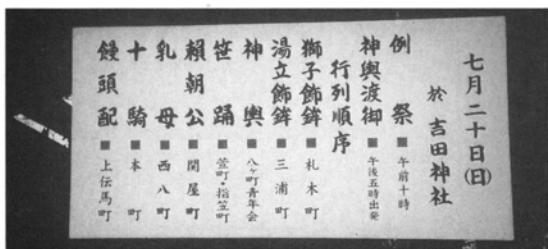 七月二十日(日)
於 吉田神社
例祭 ■ 午前十時
神輿渡御 ■ 午後五時出発
行列順序
獅子飾鉾 ■ 札木町
湯立飾鉾 ■ 三浦町
神輿 ■ 八ヶ町青年会
笹踊 ■ 萱町・指笠町
頼朝公 ■ 関屋町
乳母 ■ 西八町
十騎 ■ 本町
饅頭配 ■ 上伝馬町